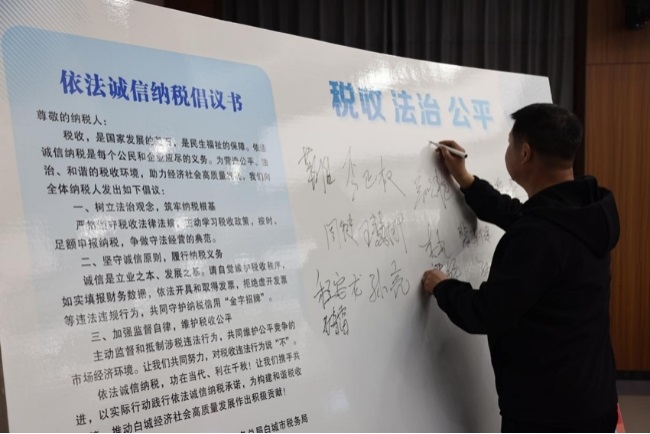 依法诚信纳税倡议书
尊敬的纳税人：
税收，是国家发展的基石，是民生福祉的保障。依法
诚信纳税是每个公民和企业应尽的义务。为营造公平、法
治、和谐的税收环境，助力经济社会高质量发展，我们向
全体纳税人发出如下倡议：
一、树立法治观念，筑牢纳税根基
严格遵守税收法律法规，主动学习税收政策，按时、
足额申报纳税，争做守法经营的典范。
二、坚守诚信原则，履行纳税义务
诚信是立业之本、发展之基。请自觉维护税收秩序，
如实填报财务数据，依法开具和取得发票，拒绝虚开发票
等违法违规行为，共同守护纳税信用“金字招牌”。
三、加强监督自律，维护税收公平
主动监督和抵制涉税违法行为，共同维护公平竞争的
市场经济环境。让我们共同努力，对税收违法行为说“不”。
依法诚信纳税，功在当代、利在千秋！让我们携手共
进，以实际行动践行依法诚信纳税承诺，为构建和谐税收
推动白城经济社会高质量发展作出积极贡献！
总局白城市税务局
税收 法治 公平